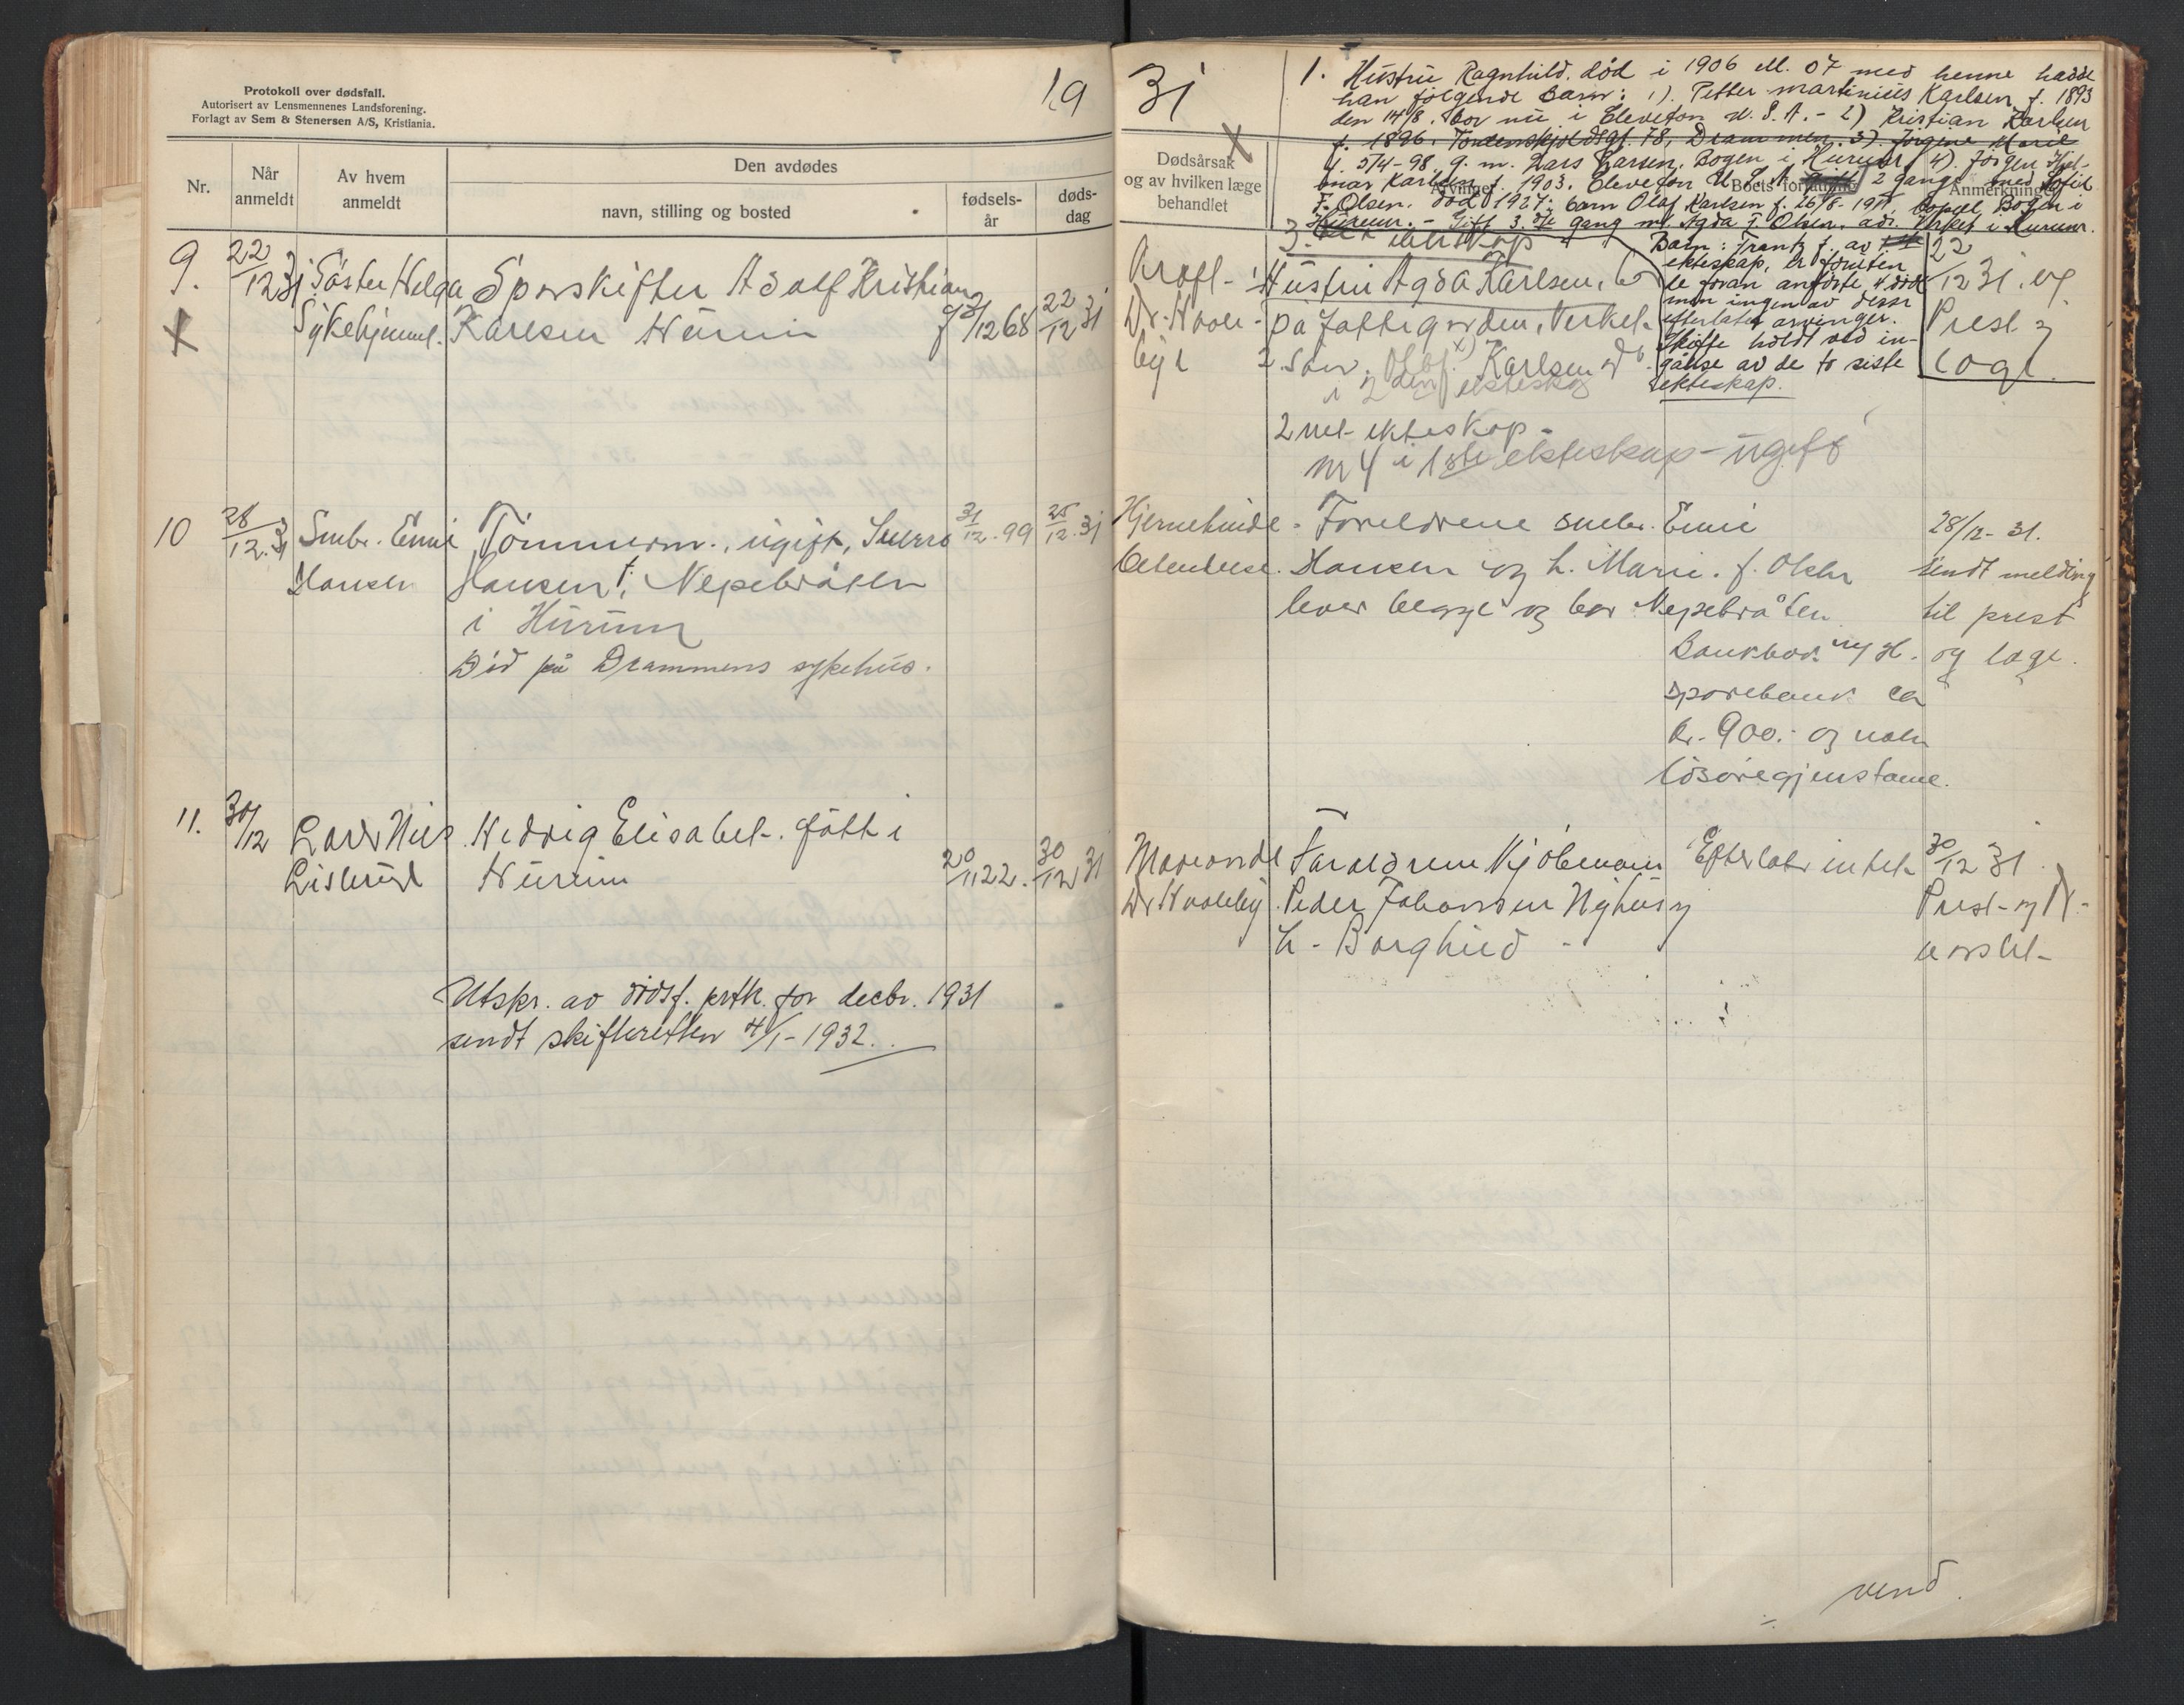 Protokoll over dødsfall.
Autorisert av Lensmennenes Landsforening.
Forlagt av Sem & Stenersen A/S, Kristiania.
19
Nr.
Når anmeldt
Av hvem anmeldt
Den avdødes
navn, stilling og bosted
fødsels-år
døds-dag
9. 22/12 31 Søster Helga Sporskifter Adolf Kristian
Sykehjemmet. Karlsen Hurum f 12 68 22/12 31
X
10 28/12.31 Smbr. Emil Tømmerm., ugift, Sverre 31/12.99 25/12.31
Hansen Hansen, Nepebråten
i Hurum
Død på Drammens sykehus.
11. 30/12 Lars Nils Hedvig Elisabet. født i
Hurum 20/11 22. 30/12 31
Utskr. av dødsf. prtk. for decbr. 1931
sendt skifteretten 4/1-1932.
31
1. Hustru Ragnhild. død i 1906 ell. 07 med henne hadde
han følgende barn: 1). Petter Martinius Karlsen f. 1893
den 14/8. bor nu i Eleveton U. S. A. - 2) Kristian Karlsen
f. 1896. Tordenskjoldsgt. 78, Drammen. 3). Jørgine Marie
f. 5/4-98. g. m. Lars Larsen, Bogen i Hurum, 4). Jørgen Hjal-
mar Karlsen f. 1903. Eleveton U. S. A. Gift 2 gang med Sofie
f. Olsen. død 1927: barn Olaf Karlsen f. 26/8-1911, bopæl Bogen i
Hurum. - Gift 3. dje gang m. Agda f. Olsen. adr. Verket i Hurum.
X
Dødsårsak og av hvilken læge behandlet
Arvinger
Boets forfatning
Anmerkninger
3. ekteskap
Hustru Agda Karlsen, b
på Jattegarden, Verket
2. Søn, Olaf x) Karlsen
i 2 den ekteskap
2 net ekteskap
nr 4 i 1ste ekteskap - ugift
Dr. Hvale-
by
Barn: Frantz f. av
ekteskap, er foruten
de foran anførte, død
men ingen av disse
efterlater arvinger.
Skifte holdt ved in-
gåelse av de to siste
ekteskap.
22/12 31. og
Prest og
læge.
Hjernehinde-
betendelse.
Foreldrene smbr. Emil
Hansen og h. Marie. f. Olsen
lever begge og bor Nepebråten
Bankbok. H.
sparebank ca
kr. 900.- og noen
løsøregjenstande.
28/12-31.
sendt melding
til prest
og læge.
Dr Hvaleby
Foreldrene Kjøbmann
Peder Johansen Nyhus og
h - Borghild -
Efterlater intet
30/12 31.
Prest og Dr
varslet
vend.